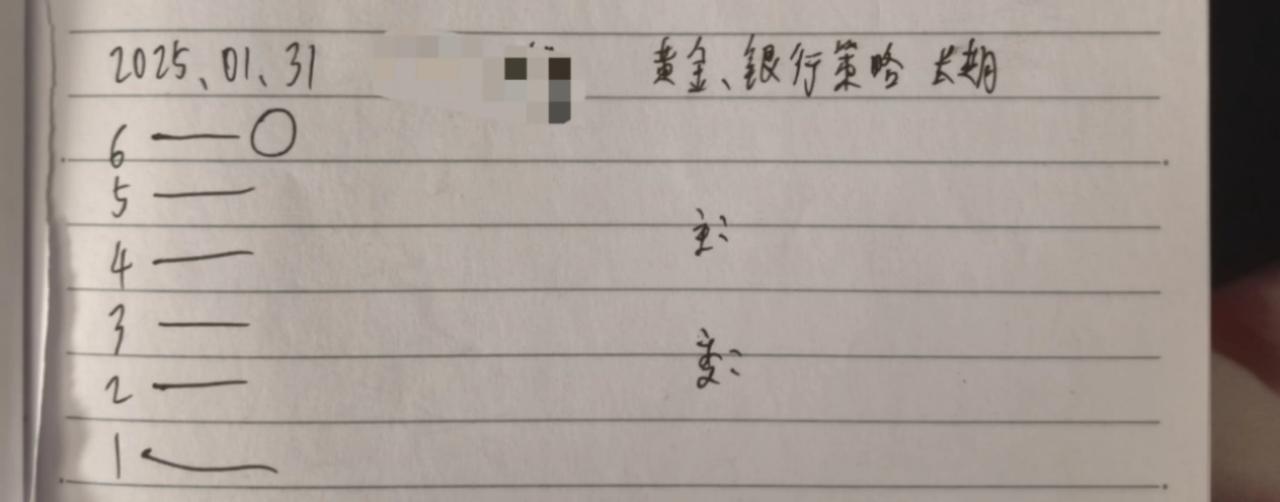 2025、01、31 黄金、银行策略 长期
6 — ○
5 —
4 —
主:
3 —
变:
2 —
1 —